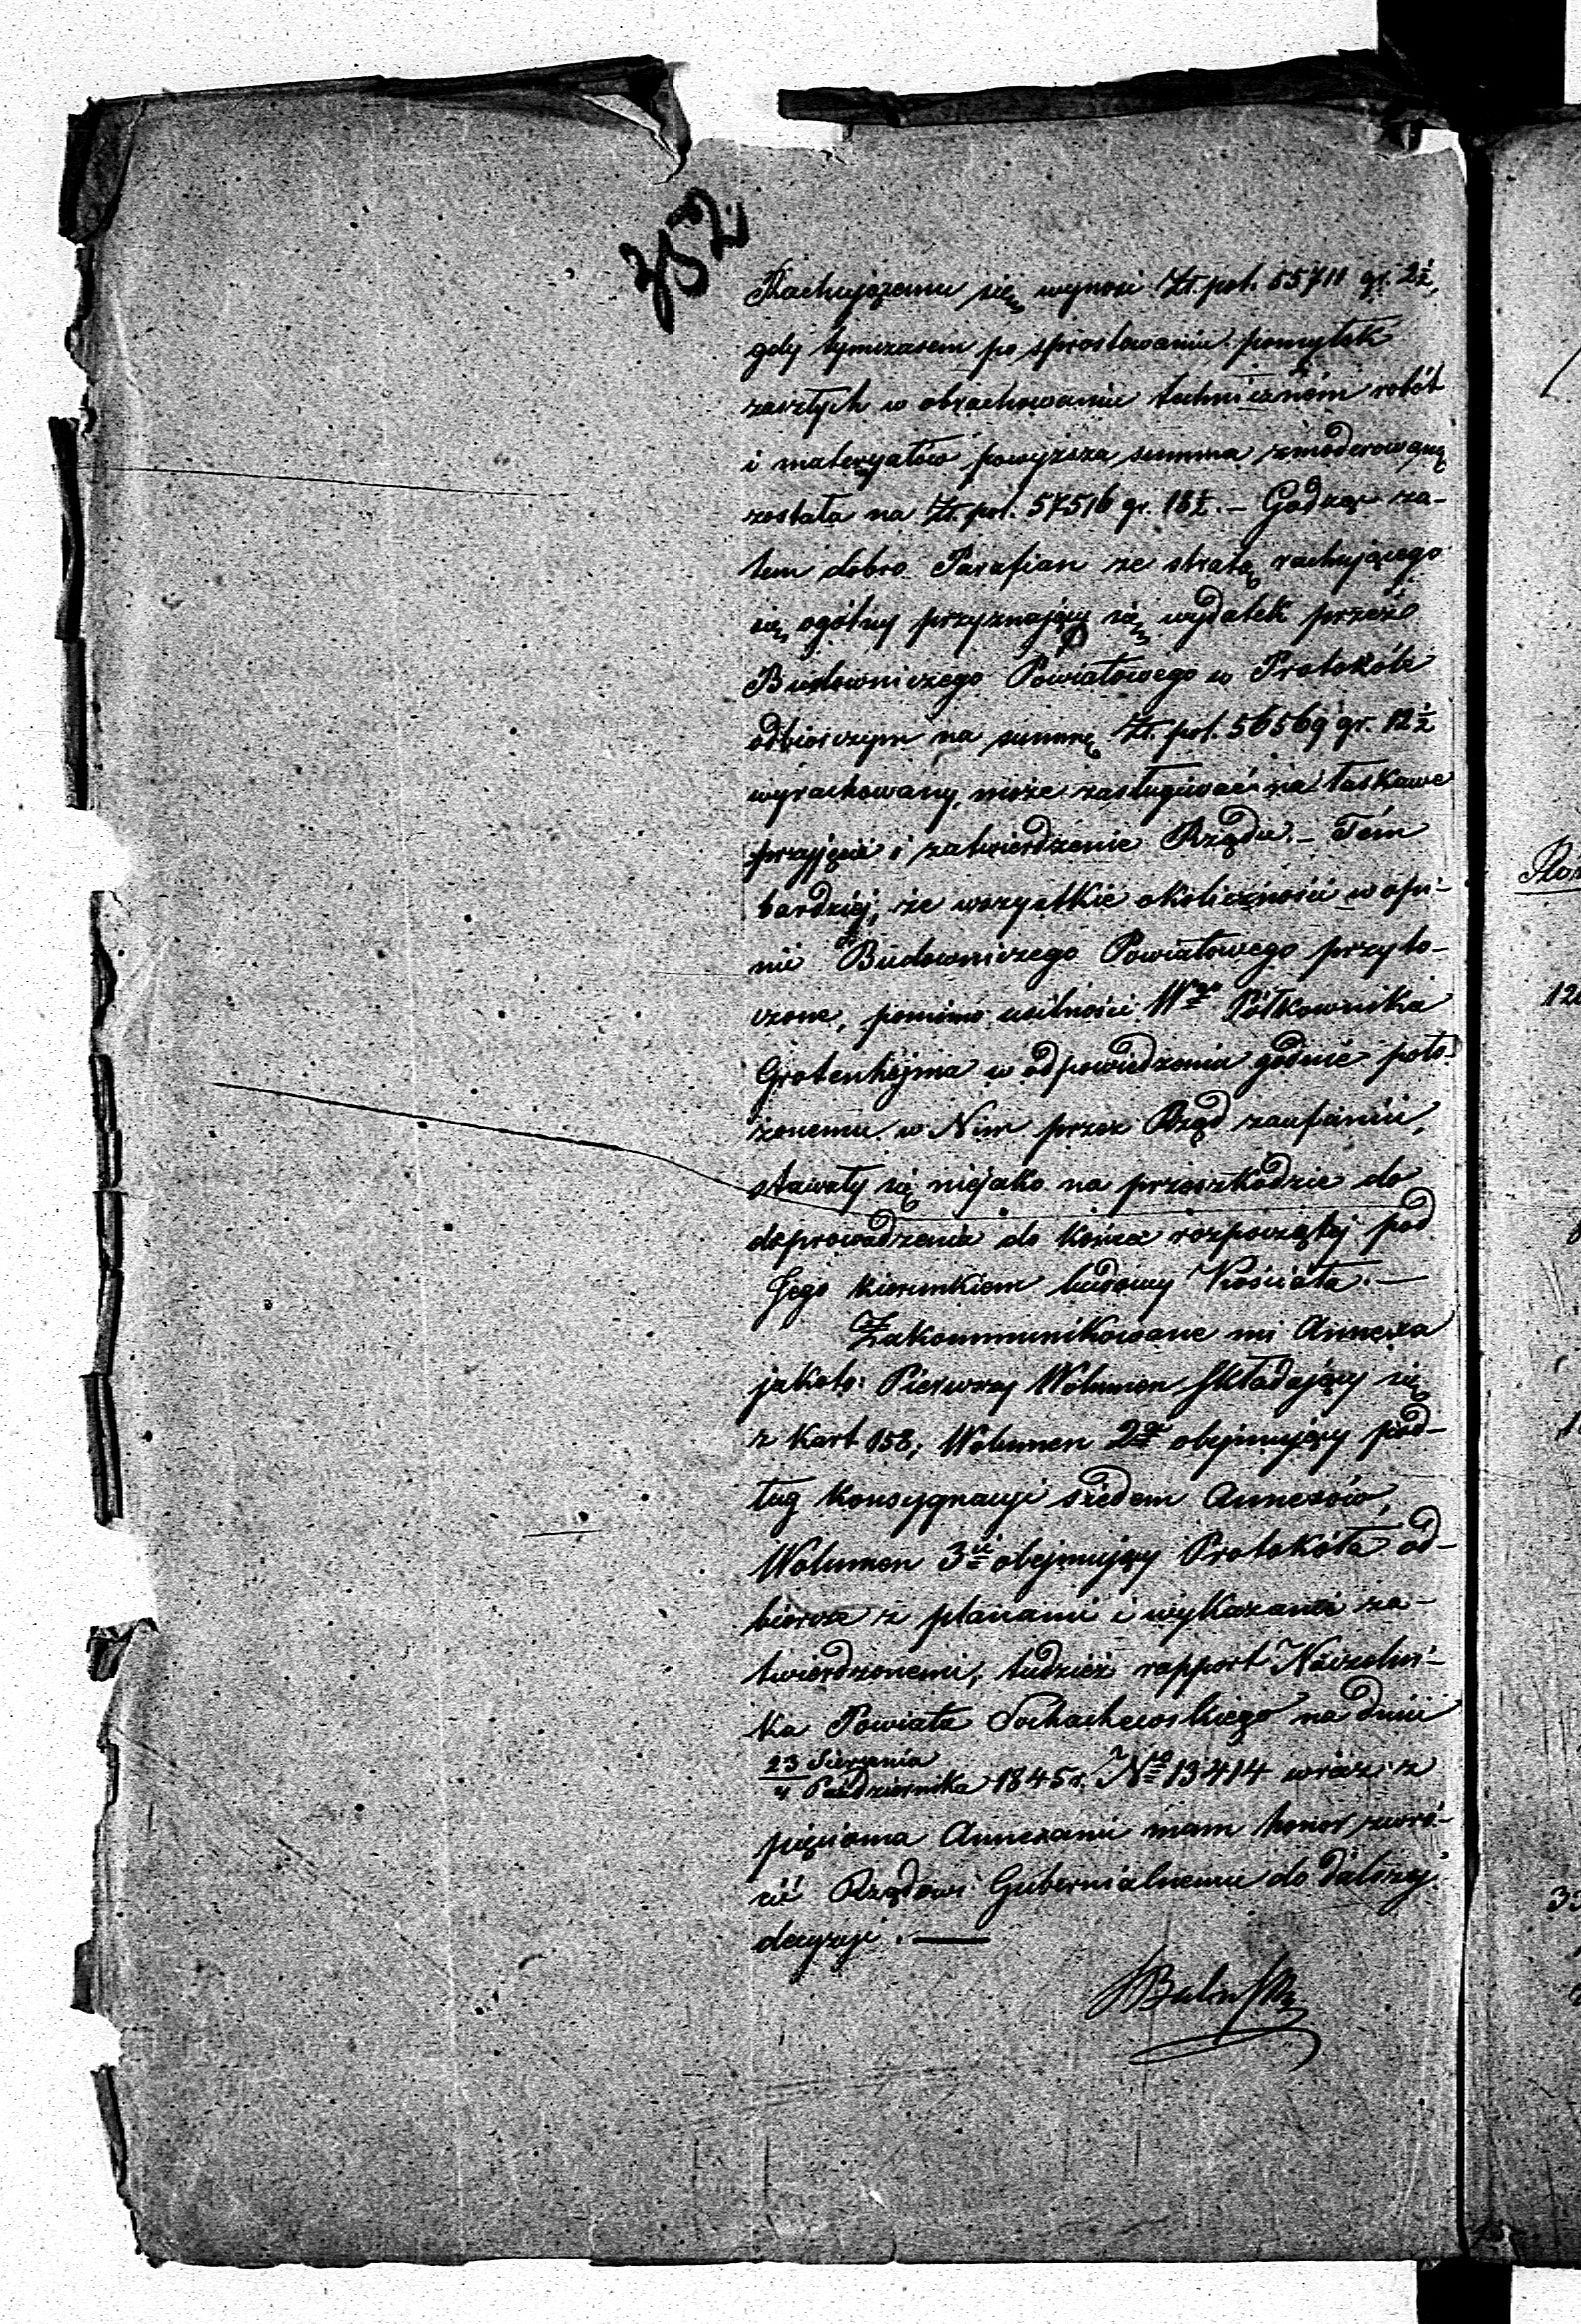 382.
Rachującemu się, wynosi Zł. pol. 55711 gr. 2½,
gdy tymczasem po sprostowaniu pomyłek
zaszłych w obrachowaniu techniczném robót
i materyałów powyższa summa zmoderowaną
została na Zł. pol. 57516 gr. 18½. – Godząc za-
tem dobro Parafian ze stratą rachującego
się, ogólny przyznający się wydatek przez
Budowniczego Powiatowego w Protokóle
odbiorczym na summę Zł. pol. 56569 gr. 12½
wyrachowany, może zasługiwać na łaskawe
przyjęcie i zatwierdzenie Rządu. – Tém
bardziej, że wszystkie okoliczności w opi-
nii Budowniczego Powiatowego przyto-
czone, pomimo usilności Wgo Półkownika
Grotenhejma w odpowiedzeniu godnie poło-
żonemu w Nim przez Rząd zaufaniu,
stawały się niejako na przeszkodzie do
doprowadzenia do końca rozpoczętej pod
Jego kierunkiem budowy Kościoła. —
Zakommunikowane mi Annexa
jakoto: Pierwszy Wolumen składający się
z kart 158; Wolumen 2gi obejmujący pod-
ług konsygnacyi siedem Annexów,
Wolumen 3ci obejmujący Protokóła od-
biorcze z planami i wykazami za-
twierdzonemi, tudzież rapport Naczelni-
ka Powiatu Sochaczewskiego na dniu
23 Sierpnia
4 Października 1845 r. No 13414 wraz z
pięcioma Annexami mam honor zwró-
cić Rządowi Gubernialnemu do dalszej
decyzyi. —